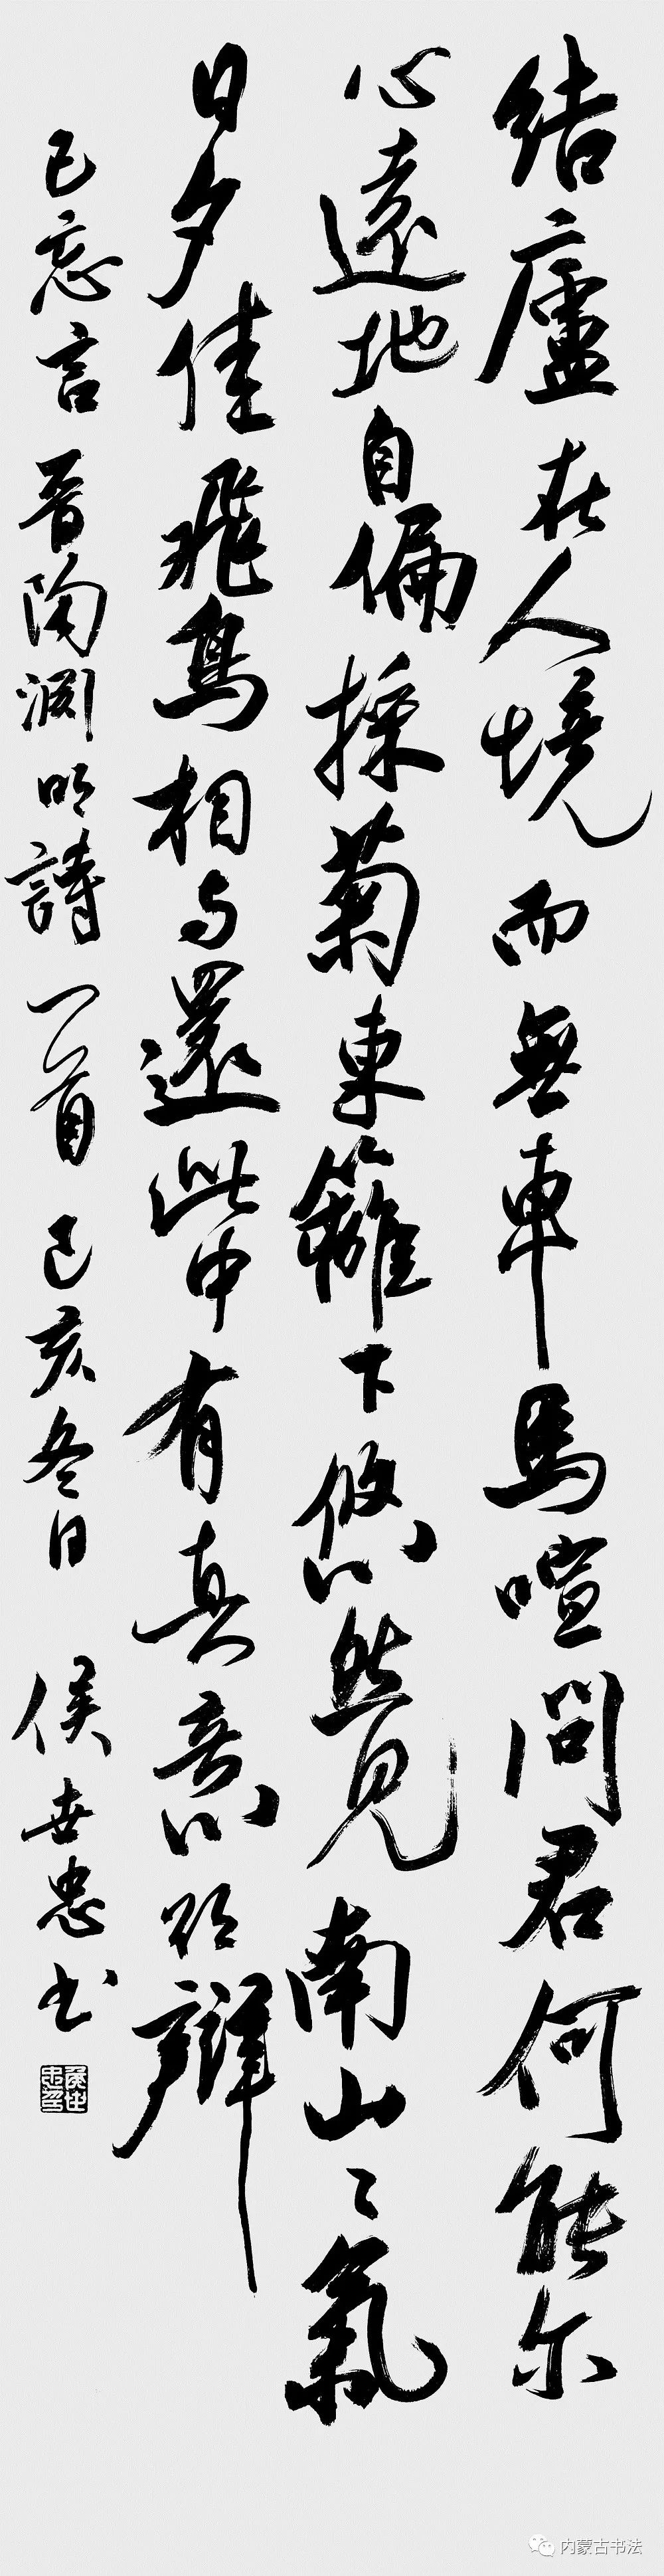 结廬在人境而無車馬喧問君何能尔
心遠地自偏採菊東籬下悠然見南山々氣
日夕佳飛鳥相与還此中有真意欲辯
已忘言晋陶渊明詩一首己亥冬日侯世忠书
内蒙古书法